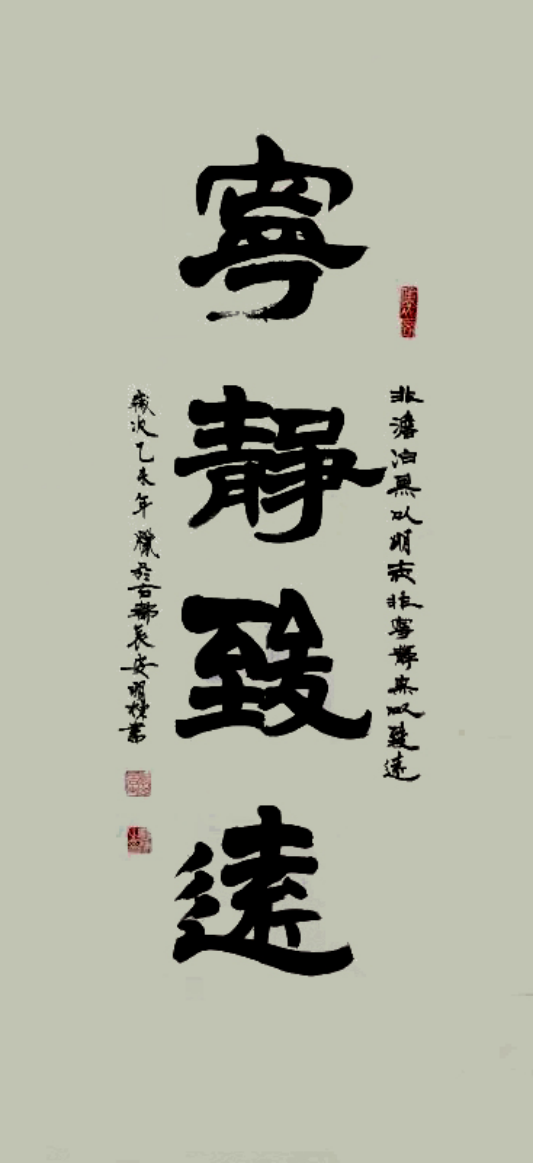 非澹泊無以明志非寧靜無以致遠
寧靜致遠
歲次乙未年臘於古都長安明棟書